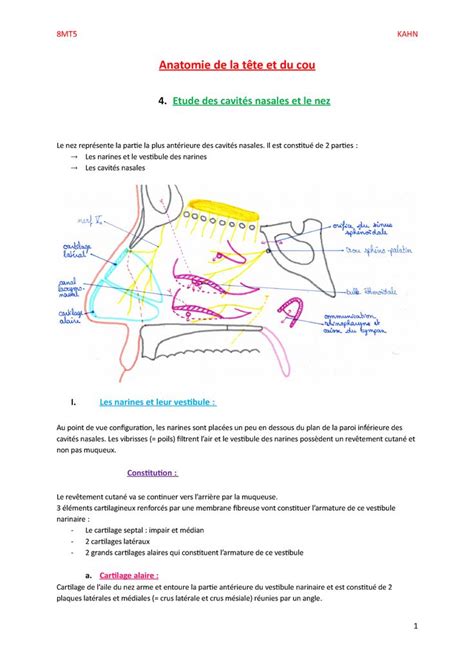 8MT5 KAHN
Anatomie de la tête et du cou
4. Etude des cavités nasales et le nez
Le nez représente la partie la plus antérieure des cavités nasales. Il est constitué de 2 parties :
→ Les narines et le vestibule des narines
→ Les cavités nasales
nerf V
orifice du sinus
sphénoïdale
cartilage
latéral
trou sphéno-palatin
canal
lacrymo-
nasal
bulle ethmoïdale
cartilage
alaire
communication
rhinopharynx et
caisse du tympan
I. Les narines et leur vestibule :
Au point de vue configuration, les narines sont placées un peu en dessous du plan de la paroi inférieure des
cavités nasales. Les vibrisses (= poils) filtrent l'air et le vestibule des narines possèdent un revêtement cutané et
non pas muqueux.
Constitution :
Le revêtement cutané va se continuer vers l'arrière par la muqueuse.
3 éléments cartilagineux renforcés par une membrane fibreuse vont constituer l'armature de ce vestibule
narinaire :
- Le cartilage septal : impair et médian
- 2 cartilages latéraux
- 2 grands cartilages alaires qui constituent l'armature de ce vestibule
a. Cartilage alaire :
Cartilage de l'aile du nez arme et entoure la partie antérieure du vestibule narinaire et est constitué de 2
plaques latérales et médiales (= crus latérale et crus mésiale) réunies par un angle.
1